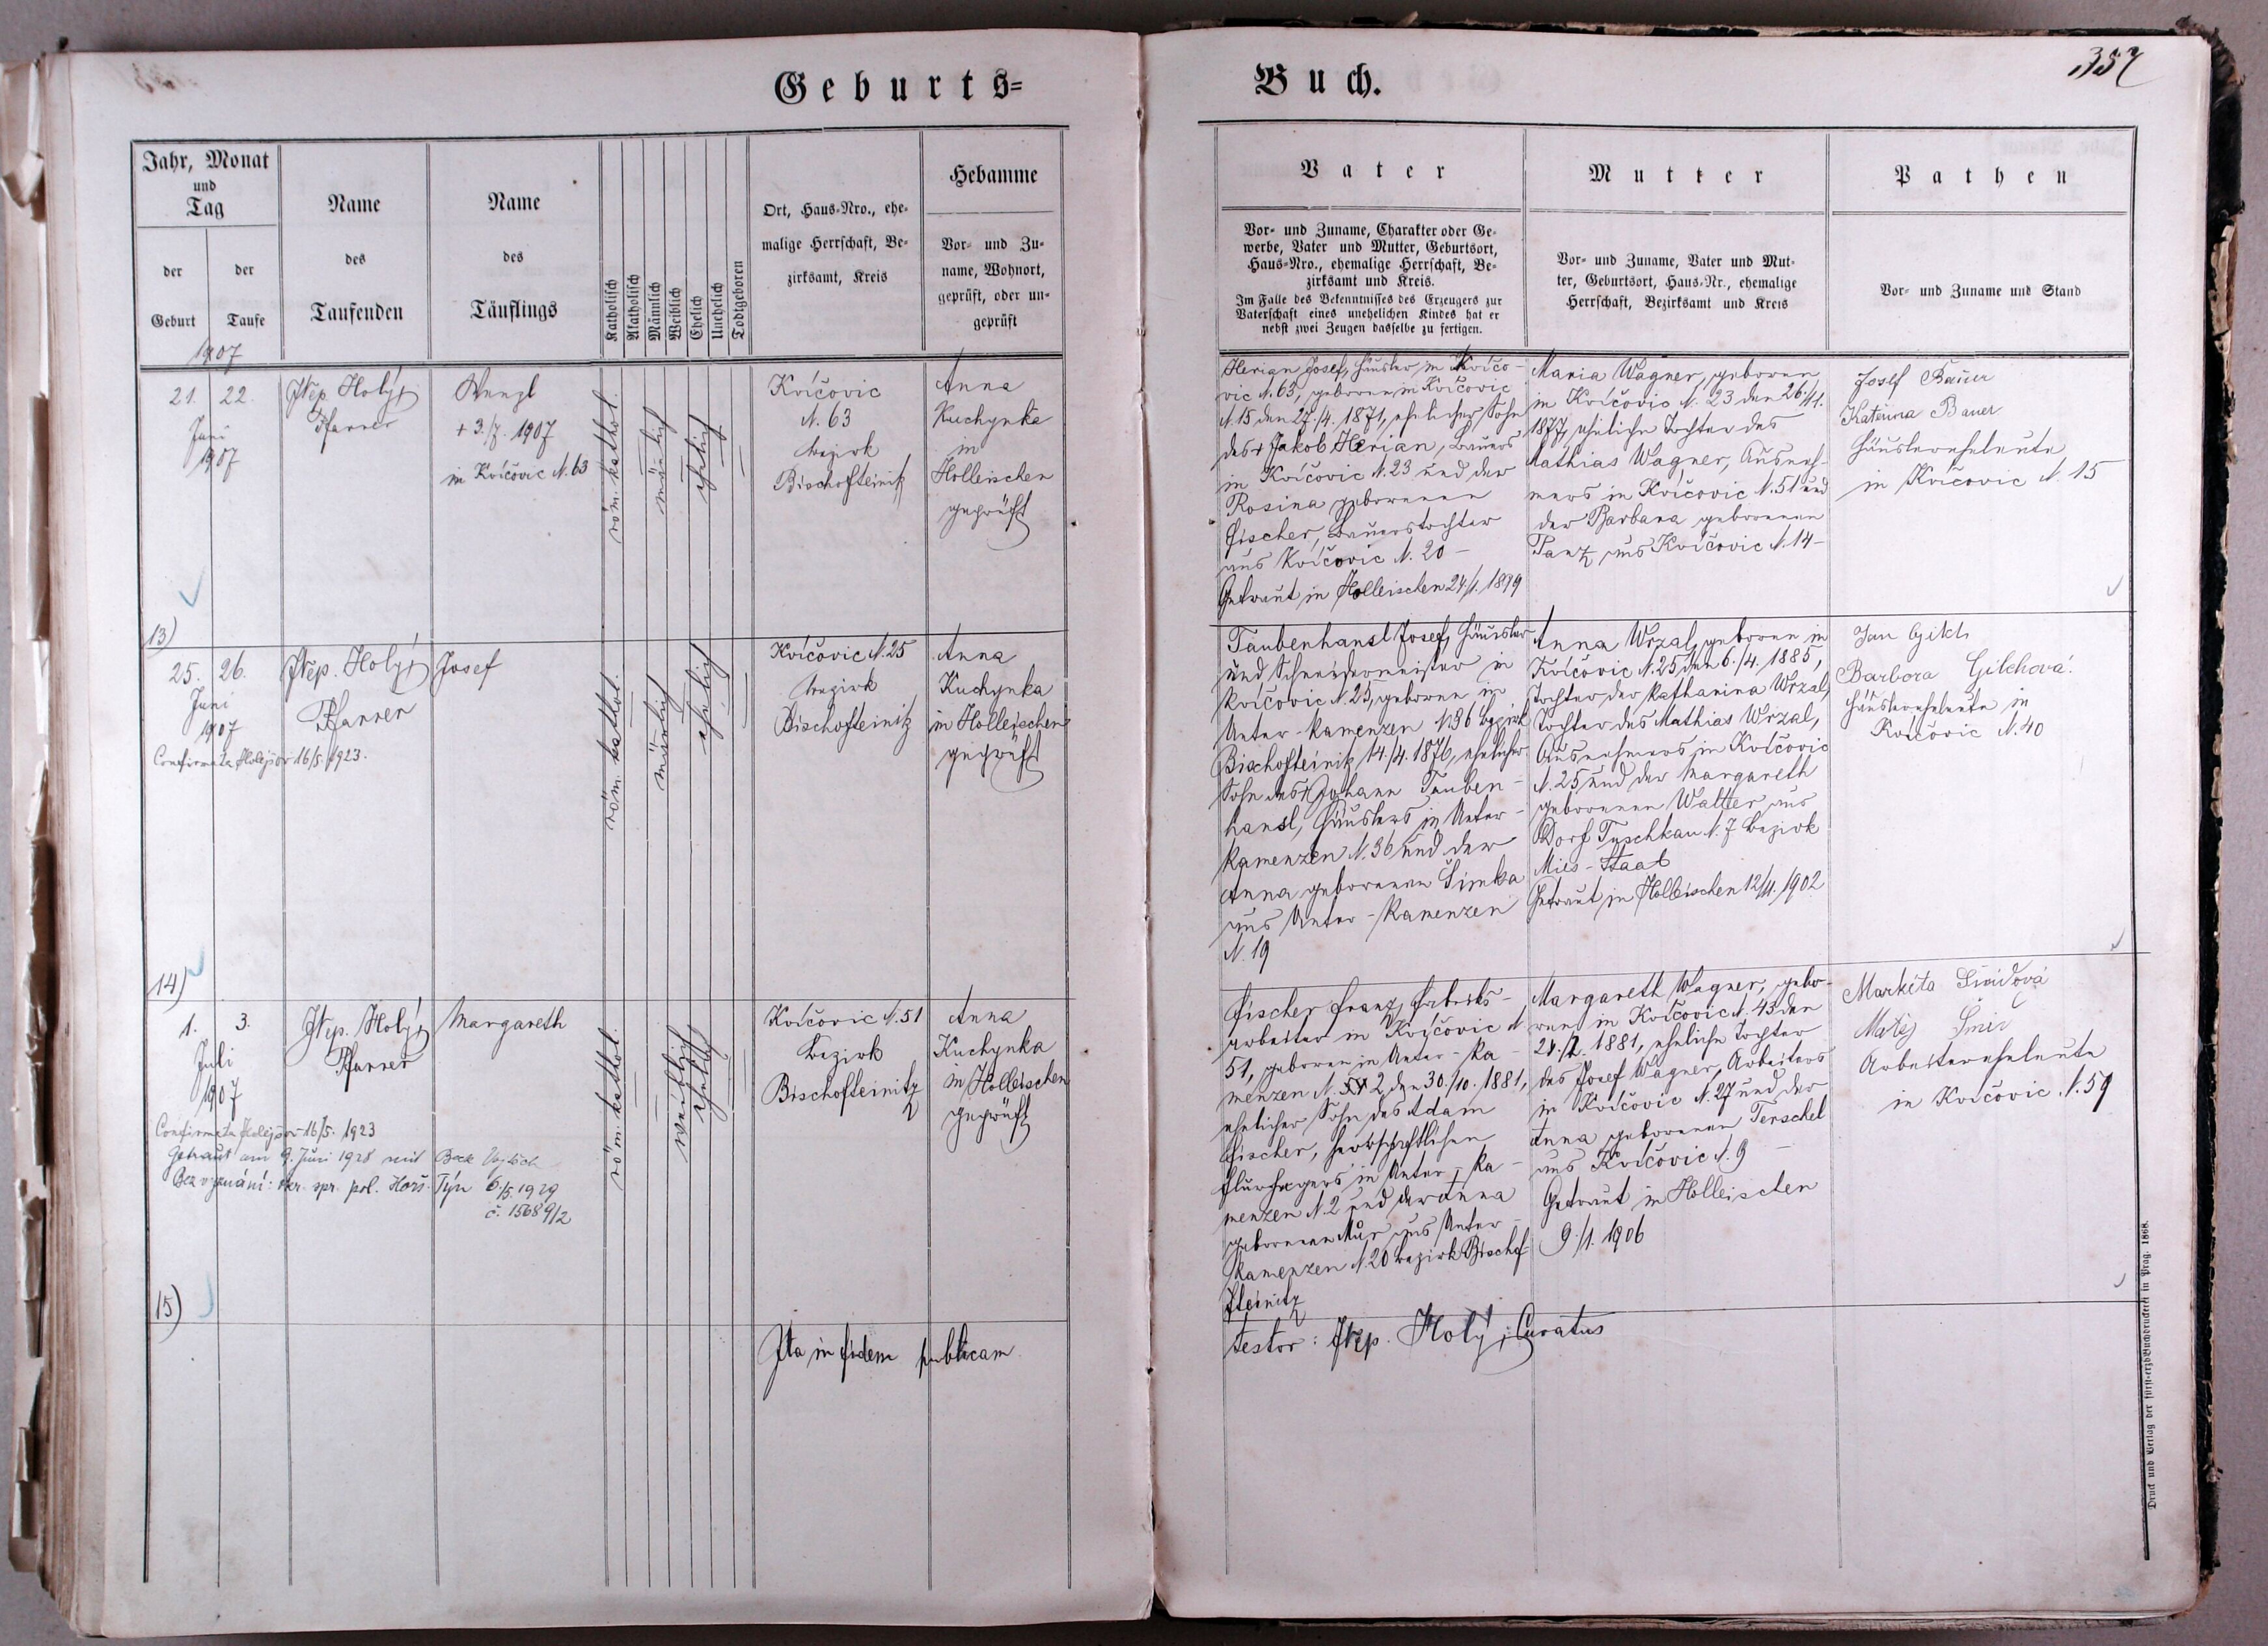 Geburts=
Buch.
357
Jahr, Monat
und
Tag
der
Geburt
der
Taufe
Name
des
Taufenden
Name
des
Täuflings
Katholisch
Akatholisch
Männlich
Weiblich
Ehelich
Unehelich
Todtgeboren
Ort, Haus-Nro., ehe-
malige Herrschaft, Be-
zirksamt, Kreis
Hebamme
Vor- und Zu-
name, Wohnort,
geprüft, oder un-
geprüft
Vater
Vor- und Zuname, Charakter oder Ge-
werbe, Vater und Mutter, Geburtsort,
Haus-Nro., ehemalige Herrschaft, Be-
zirksamt und Kreis.
Im Falle des Bekenntnisses des Erzeugers zur
Vaterschaft eines unehelichen Kindes hat er
nebst zwei Zeugen dasselbe zu fertigen.
Mutter
Vor- und Zuname, Vater und Mut-
ter, Geburtsort, Haus-Nr., ehemalige
Herrschaft, Bezirksamt und Kreis
Pathen
Vor- und Zuname und Stand
1907
21.
Juni
1907
22.
JNep. Holý
Pfarrer
Wenzl
+ 3./7. 1907
in Kvíčovic N. 63
röm. kathol.
männlich
ehelich
Kvíčovic
N. 63
Bezirk
Bischofteinitz
Anna
Kuchynka
in
Holleischen
geprüft
Herian Josef, Häusler in Kvíčo-
vic N. 63, geboren in Kvíčovic
N. 15 den 27./4. 1871, ehelicher Sohn
des + Jakob Herian, Bauers
in Kvíčovic N. 23 und der
Rosina geborenen
Fischer, Bauerstochter
aus Kvíčovic N. 20 –
Getraut in Holleischen 24./1. 1899
Maria Wagner, geboren
in Kvíčovic N. 23 den 26./11.
1877, eheliche Tochter des
Mathias Wagner, Ausneh-
mers in Kvíčovic N. 51 und
der Barbara geborenen
Panz aus Kvíčovic N. 14 –
Josef Bauer
Katerina Bauer
Häuslerseheleute
in Kvíčovic N. 15
13)
25.
Juni
1907
26.
JNep. Holý
Pfarrer
Josef
Confirmata Holýšov 16/5. 1923.
röm. kathol.
männlich
ehelich
Kvíčovic N. 25
Bezirk
Bischofteinitz
Anna
Kuchynka
in Holleischen
geprüft
Taubenhansl Josef, Häusler
und Schneidermeister in
Kvíčovic N. 25, geboren in
Unter-Kamenzen N. 36 Bezirk
Bischofteinitz 14./4. 1876, ehelicher
Sohn des + Johann Tauben-
hansl, Häuslers in Unter-
Kamenzen N. 36 und der
Anna geborenen Šimka
aus Unter-Kamenzen
N. 19
Anna Wrzal, geboren in
Kvíčovic N. 25, den 6./4. 1885,
Tochter der Katharina Wrzal,
Tochter des Mathias Wrzal,
Ausnehmers in Kvíčovic
N. 25 und der Margareth
geborenen Walter aus
Dorf Tuschkau N. 7 Bezirk
Mies-Staab
Getraut in Holleischen 12/11. 1902
Jan Gilch
Barbora Gilchová
Häuslerseheleute in
Kvíčovic N. 40
14)
1.
Juli
1907
3.
JNep. Holý
Pfarrer
Margareth
Confirmata Holýšov 16/5. 1923
Getraut am 9. Juni 1928 mit Beck Vojtěch
Bez vyznání: okr. spr. pol. Horš. Týn 6./5. 1929
č. 15689/2
röm. kathol.
weiblich
ehelich
Kvíčovic N. 51
Bezirk
Bischofteinitz
Anna
Kuchynka
in Holleischen
geprüft
Fischer Franz, Fabriks-
arbeiter in Kvíčovic N.
51, geboren in Unter-Ka-
menzen N. 2, den 30./10. 1881,
ehelicher Sohn des Adam
Fischer, herrschaftlichen
Flurhegers in Unter-Ka-
menzen N. 2 und der Anna
geborenen aus Unter-
Kamenzen N. 20 Bezirk Bischof-
steinitz
Margareth Wagner, gebo-
ren in Kvíčovic N. 43 den
1881, eheliche Tochter
des Josef Wagner, Arbeiters
in Kvíčovic N. 27 und der
Anna geborenen Terschel
aus Kvíčovic N. 9 –
Getraut in Holleischen
9./1. 1906
Markéta Šmídová
Matěj Šmíd
Arbeiterseheleute
in Kvíčovic N. 59
15)
Ita in fidem publicam
testor: JNep. Holý, Curatus
Druck und Verlag der fürst-erzb. Buchdruckerei in Prag. 1868.